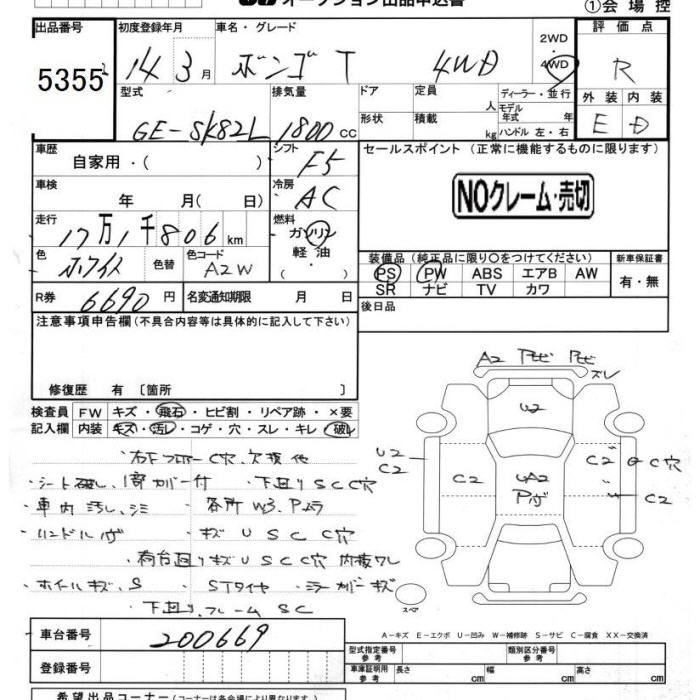 オークション出品申込書
①会場控
出品番号 初度登録年月 車名・グレード 評価点
5355 14年 3月 ボンゴ T 4WD 2WD 4WD R
型式 排気量 ドア 定員 人 ディーラー・並行 外装 内装
GE-SK82L 1800cc 形状 積載 kg モデル年式 年 ハンドル 左・右 E D
車歴 自家用・( ) シフト F5 セールスポイント (正常に機能するものに限ります)
車検 年 月( 日) 冷房 AC NOクレーム・売切
走行 17万1千806km 燃料 ガソリン
軽油
色 ホワイト 色替 色コード A2W 装備品 (純正品に限り〇をつけてください) 新車保証書
PS PW ABS エアB AW 有・無
SR ナビ TV カワ
R券 6690円 名変通知期限 月 日 後日品
注意事項申告欄 (不具合内容等は具体的に記入して下さい)
修復歴 有 [箇所 ]
A2 アセビ アセビ スレ
U2
検査員 FW キズ・飛石・ヒビ割・リペア跡・×要
記入欄 内装 キズ・汚レ・コゲ・穴・スレ・キレ・破レ
右下フロアーC穴、欠損他
U2 C2 C2 UA2 C2 C穴
シート破レ、1部カバー付 ・下回りSCC穴
C2
車内汚レ、シミ ・各所W3、Pムラ
ハンドルガ ・キズUSCC穴
荷台回りキズUSCC穴 内張ワレ
ホイールキズ、S ・STタイヤ ・ミラーカバーキズ
下回り、フレームSC
スペア
A-キズ E-エクボ U-凹み W-補修跡 S-サビ C-腐食 XX-交換済
車台番号 200669
型式指定番号 参考 類別区分番号 参考
登録番号 車庫証明用 参考 長さ cm 幅 cm 高さ cm
希望出品コーナー (コーナーは各会場により異なります。)